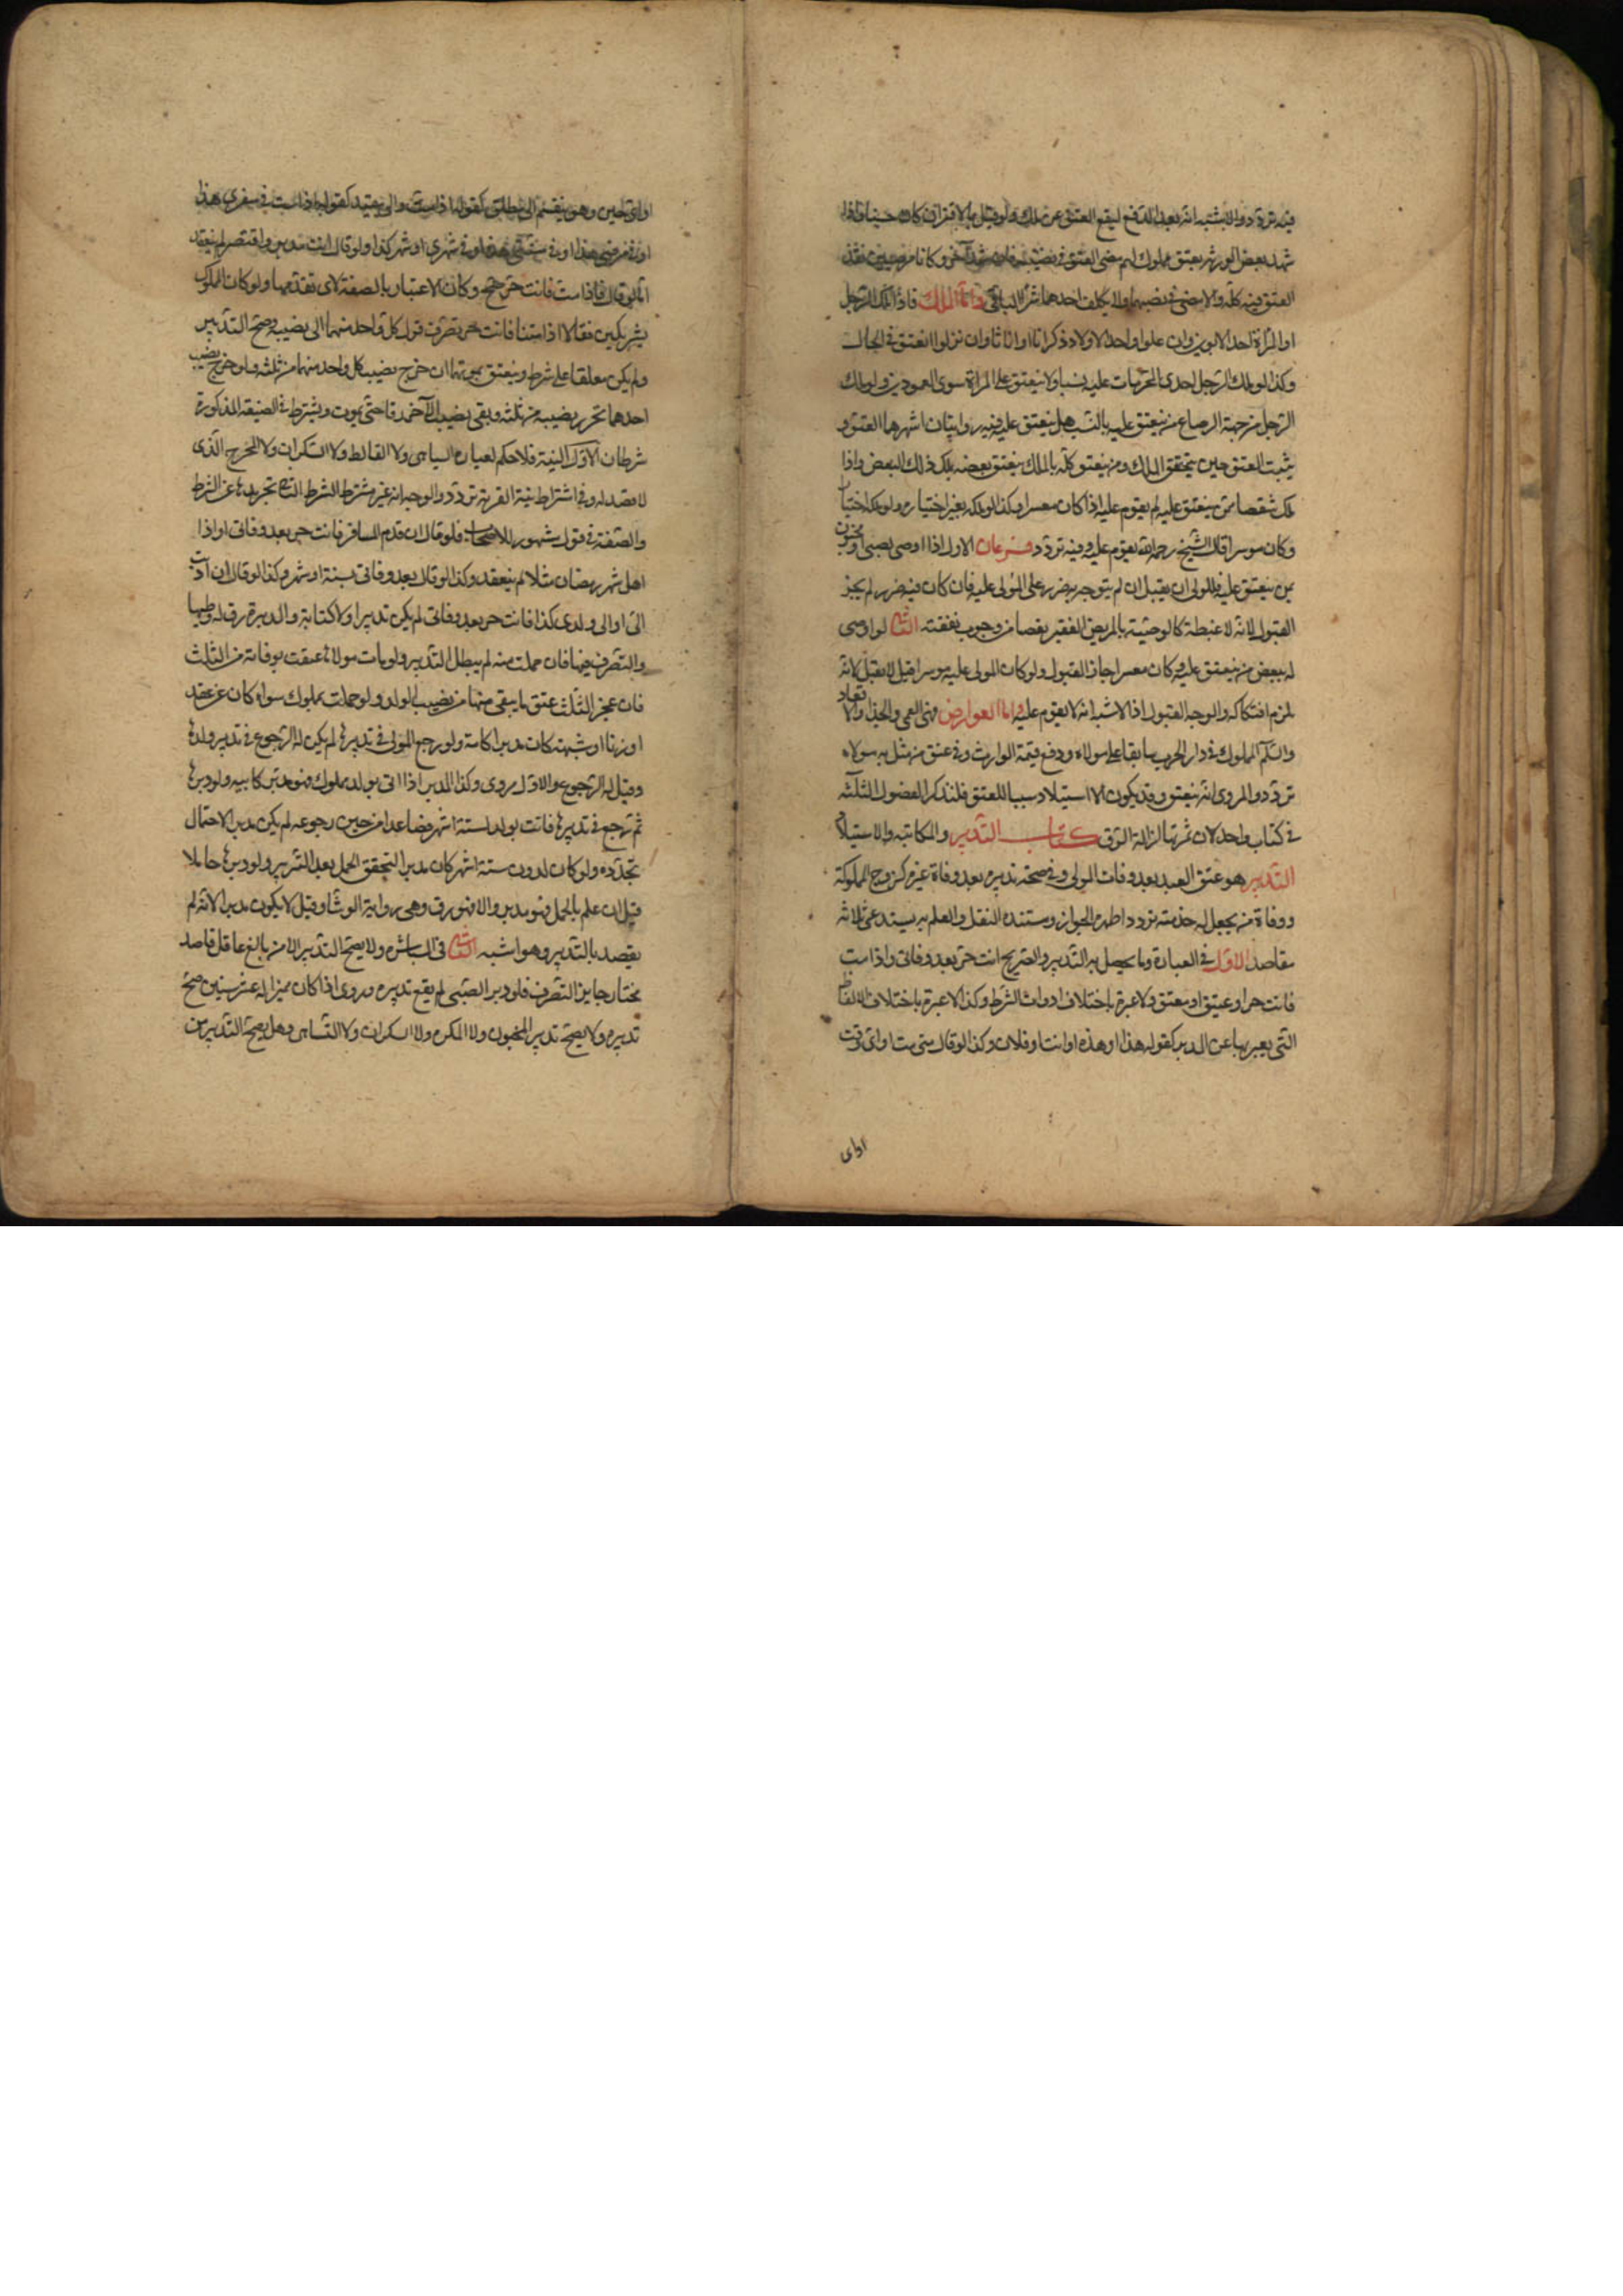 فيه تردد والاشبه انه بعد الدفع ليقع العتق عن ملك ولو قيل بالاقتران كان حسنا واذا
شهد بعض الورثة بعتق مملوك لهم مضى العتق في نصيبه فان شهد آخر وكانا مرضيين نفذ
العتق فيه كله والا مضى في نصيبهما ولا يكلف احدهما شراء الباقي واما الملك فاذا ملك الرجل
او المرأة احد الابوين وان علوا واحد الاولاد ذكرانا واناثا وان نزلوا انعتق في الحال
وكذا لو ملك الرجل احدى المحرمات عليه نسبا ولا ينعتق على المرأة سوى العمودين ولو ملك
الرجل من جهة الرضاع من ينعتق عليه بالنسب هل ينعتق عليه فيه روايتان اشهرهما العتق و
يثبت العتق حين يتحقق الملك ومن ينعتق كله بالملك ينعتق بعضه بملك ذلك البعض واذا
ملك شقصا ممن ينعتق عليه لم يقوم عليه اذا كان معسرا وكذا لو ملكه بغير اختياره ولو ملكه اختيارا
وكان موسرا قال الشيخ رحمه الله يقوم عليه وفيه تردد فرعان الاول اذا اوصى بصبي او مجنون
بمن ينعتق عليه فللولي ان يقبل ان لم يتوجه به ضرر على المولى عليه فان كان فيه ضرر لم يجز
القبول لانه لا غبطة كالوصية بالمريض الفقير تفصيا من وجوب نفقته الثاني لو اوصى
له ببعض من ينعتق عليه وكان معسرا جاز القبول ولو كان المولى عليه موسرا قيل لا يقبل لانه
يلزم افتكاكه والوجه القبول اذ الاشبه انه لا يقوم عليه واما العوارض فهي العمى والجذام والاقعاد
واسلام المملوك في دار الحرب سابقا على مولاه ودفع قيمة الوارث وفي عتق من مثل به مولاه
تردد والمروي انه ينعتق وقد يكون الاستيلاد سببا للعتق فلنذكر الفصول الثلثة
في كتاب واحد لان ثمرتها ازالة الرق كتاب التدبير والمكاتبة والاستيلاد
التدبير هو عتق العبد بعد وفات المولى وفي صحته تدبيره بعد وفاة غيره كزوج المملوكة
ووفاة من يجعل له خدمته تردد اظهره الجواز ومستنده النقل والعلم به يستدعي ثلاثة
مقاصد الاول في العبارة وما يحصل به التدبير والصريح انت حر بعد وفاتي واذا مت
فانت حر او عتيق او معتق ولا عبرة باختلاف ادوات الشرط وكذا لا عبرة باختلاف الالفاظ
التي يعبر بها عن المدبر كقوله هذا او هذه او انت او فلان وكذا لو قال متى مت او اي وقت
او اي
او اي حين وهو ينقسم الى مطلق كقوله اذا مت والى مقيد كقوله اذا مت في سفري هذا
او في مرضي هذا او في سنتي هذه او في شهري او شهر كذا ولو قال انت مدبر واقتصر لم ينعقد
اما لو قال فاذا مت فانت حر صح وكان الاعتبار بالصفة لا بما تقدمها ولو كان المملوك
لشريكين فقالا اذا متنا فانت حر تصرف قول كل واحد منهما الى نصيبه وصح التدبير
ولم يكن معلقا على شرط وينعتق بموتهما ان خرج نصيب كل واحد منهما من ثلثه ولو خرج نصيب
احدهما تحرر نصيبه من ثلثه وبقي نصيب الآخر رقا حتى يموت ويشترط في الصيغة المذكورة
شرطان الاول النية فلا حكم لعبارة الساهي ولا الغالط ولا السكران ولا المحرج الذي
لا قصد له وفي اشتراط نية القربة تردد والوجه انه غير مشترط الشرط الثاني تجريدها عن الشرط
والصفة في قول مشهور للاصحاب فلو قال ان قدم المسافر فانت حر بعد وفاتي او اذا
اهل شهر رمضان مثلا لم ينعقد وكذا لو قال بعد وفاتي بسنة او شهر وكذا لو قال ان اديت
الي او الى ولدي كذا فانت حر بعد وفاتي لم يكن تدبيرا ولا كتابة والمدبرة رق له وطيها
والتصرف فيها فان حملت منه لم يبطل التدبير ولو مات مولاها عتقت بوفاته من الثلث
فان عجز الثلث عتق ما يبقى منها من نصيب الولد ولو حملت بمملوك سواء كان عن عقد
او زنا او شبهة كان مدبرا كامه ولو رجع المولى في تدبيرها لم يكن له الرجوع في تدبير ولدها
وقيل له الرجوع والاول مروي وكذا المدبر اذا اتى بولد مملوك فهو مدبر كابيه ولو دبرها
ثم رجع في تدبيرها فاتت بولد لستة اشهر فصاعدا من حين رجوعه لم يكن مدبرا لاحتمال
تجدده ولو كان لدون ستة اشهر كان مدبرا لتحقق الحمل بعد التدبير ولو دبرها حاملا
قيل ان علم بالحمل فهو مدبر والا فهو رق وهي رواية الوشا وقيل لا يكون مدبرا لانه لم
يقصد بالتدبير وهو اشبه الثاني في المباشر ولا يصح التدبير الا من بالغ عاقل قاصد
مختار جايز التصرف فلو دبر الصبي لم يقع تدبيره وروى اذا كان مميزا له عشر سنين صح
تدبيره ولا يصح تدبير المجنون ولا المكره ولا السكران ولا الساهي وهل يصح التدبير من